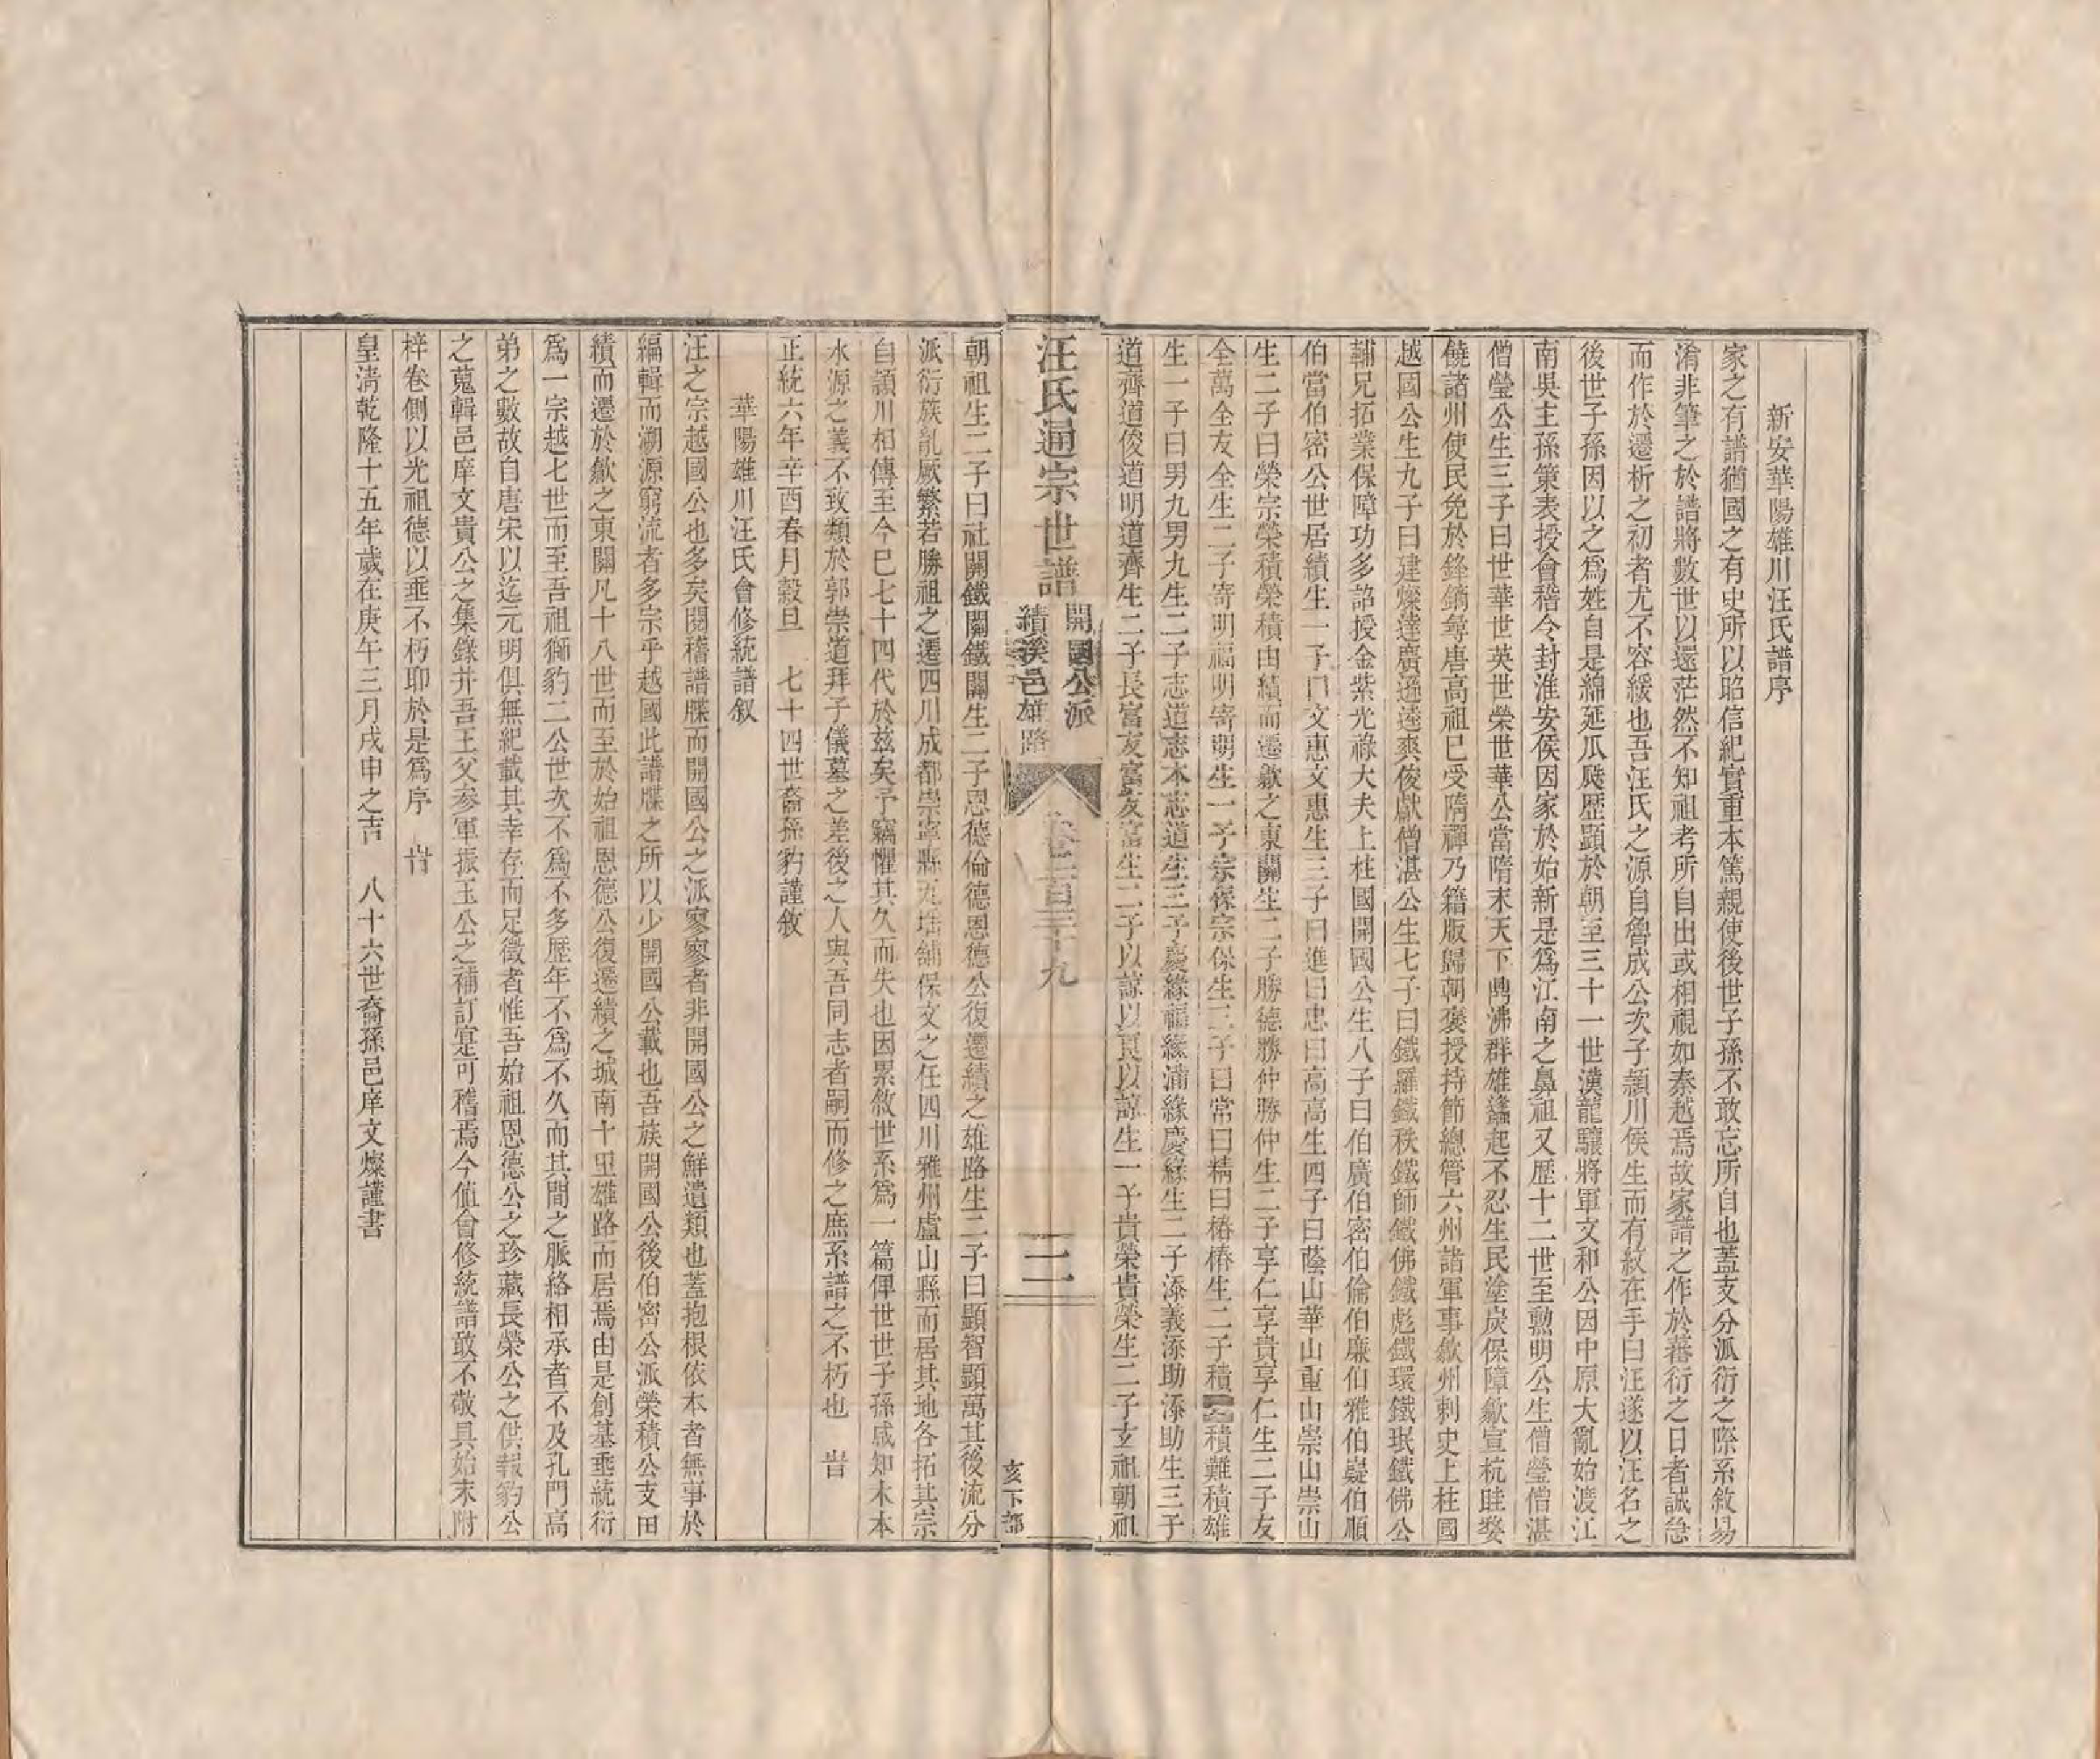 新安華陽雄川汪氏譜序
家之有譜猶國之有史所以昭信紀實重本篤親使後世子孫不敢忘所自也蓋支分派衍之際系敘易
淆非筆之於譜將數世以還茫然不知祖考所自出或相視如秦越焉故家譜之作於蕃衍之日者誠急
而作於遷析之初者尤不容緩也吾汪氏之源自魯成公次子潁川侯生而有紋在手曰汪遂以汪名之
後世子孫因以之爲姓自是綿延瓜瓞歷顯於朝至三十一世漢龍驤將軍文和公因中原大亂始渡江
南吳主孫策表授會稽令封淮安侯因家於始新是爲江南之鼻祖又歷十二世至勲明公生僧瑩僧湛
僧瑩公生三子曰世華世英世榮世華公當隋末天下鼎沸群雄蠭起不忍生民塗炭保障歙宣杭睦婺
饒諸州使民免於鋒鏑尋唐高祖已受隋禪乃籍版歸朝褒授持節總管六州諸軍事歙州刺史上柱國
越國公生九子曰建燦達廣遜逵爽俊獻僧湛公生七子曰鐵羅鐵秩鐵師鐵佛鐵彪鐵環鐵珉鐵佛公
輔兄拓業保障功多詔授金紫光祿大夫上柱國開國公生八子曰伯廣伯密伯倫伯廉伯雅伯嶷伯順
伯當伯密公世居績生一子曰文惠文惠生三子曰進曰忠曰高高生四子曰蔭山華山重山崇山崇山
生二子曰榮宗榮積榮積由績而遷歙之東關生二子勝德勝仲勝仲生二子享仁享貴享仁生二子友
全萬全友全生二子寄明福明寄明生一子宗保宗保生三子曰常曰精曰椿椿生二子積積難積雄
生一子曰男九男九生二子志道志本志道生三子慶緣福緣滿緣慶緣生二子添義添助添助生三子
道齊道俊道明道齊生二子長富友富友富生二子以諒以良以諒生一子貴榮貴榮生二子玄祖朝祖
汪氏通宗世譜
開國公派
績溪邑雄路
卷一百三十九
二
亥下部
朝祖生二子曰社開鐵關鐵關生二子恩德倫德恩德公復遷績之雄路生二子曰顯智顯萬其後流分
派衍族亂厥繁若勝祖之遷四川成都崇寧縣瓦塔舖保文之任四川雅州盧山縣而居其地各拓其宗
自潁川相傳至今已七十四代於玆矣予竊懼其久而失也因累敘世系爲一篇俾世世子孫咸知木本
水源之義不致類於郭崇道拜子儀墓之差後之人與吾同志者嗣而修之庶系譜之不朽也　旹
正統六年辛酉春月穀旦　七十四世裔孫豹謹敘
華陽雄川汪氏會修統譜叙
汪之宗越國公也多矣閱稽譜牒而開國公之派寥寥者非開國公之鮮遺類也蓋抱根依本者無事於
編輯而溯源窮流者多宗乎越國此譜牒之所以少開國公載也吾族開國公後伯密公派榮積公支由
績而遷於歙之東關凡十八世而至於始祖恩德公復遷績之城南十里雄路而居焉由是創基垂統衍
爲一宗越七世而至吾祖獅豹二公世次不爲不多歷年不爲不久而其間之脈絡相承者不及孔門高
弟之數故自唐宋以迄元明俱無紀載其幸存而足徵者惟吾始祖恩德公之珍藏長榮公之供報豹公
之蒐輯邑庠文貴公之集錄并吾王父參軍振玉公之補訂寔可稽焉今値會修統譜敢不敬具始末附
梓卷側以光祖德以垂不朽耶於是爲序　旹
皇淸乾隆十五年歲在庚午三月戌申之吉　八十六世裔孫邑庠文燦謹書